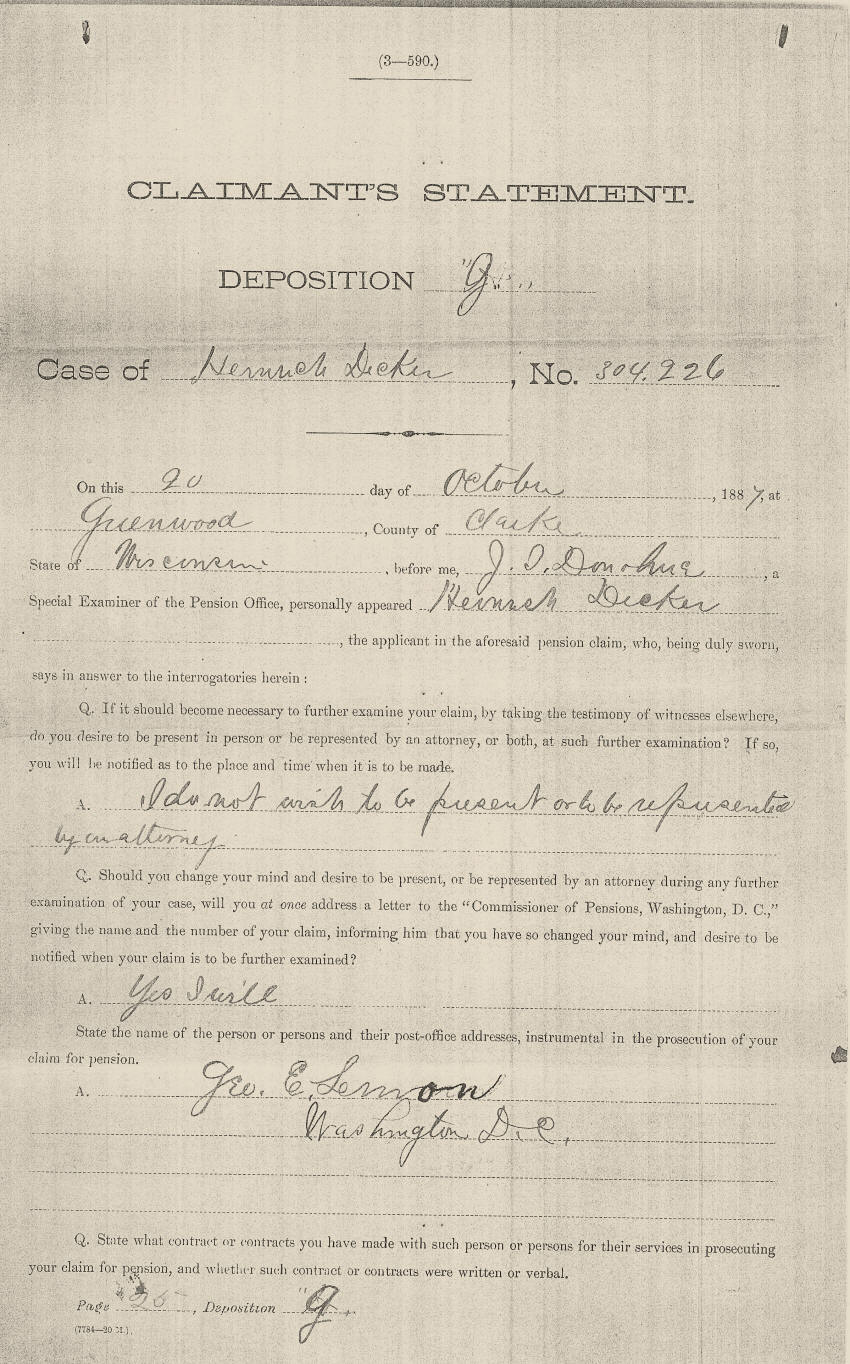 (3—590.)
CLAIMANT'S STATEMENT.
DEPOSITION "G"
Case of Heinrich Decker, No. 304.226
On this 20 day of October, 1887, at
Greenwood, County of Clarke
State of Wisconsin, before me, J. T. Donohue, a
Special Examiner of the Pension Office, personally appeared Heinrich Decker
, the applicant in the aforesaid pension claim, who, being duly sworn,
says in answer to the interrogatories herein:
Q. If it should become necessary to further examine your claim, by taking the testimony of witnesses elsewhere,
do you desire to be present in person or be represented by an attorney, or both, at such further examination? If so,
you will be notified as to the place and time when it is to be made.
A. I do not wish to be present or to be represented
by an attorney.
Q. Should you change your mind and desire to be present, or be represented by an attorney during any further
examination of your case, will you at once address a letter to the "Commissioner of Pensions, Washington, D. C.,"
giving the name and the number of your claim, informing him that you have so changed your mind, and desire to be
notified when your claim is to be further examined?
A. Yes I will
State the name of the person or persons and their post-office addresses, instrumental in the prosecution of your
claim for pension.
A. Geo. E. Lemon
Washington D.C.
Q. State what contract or contracts you have made with such person or persons for their services in prosecuting
your claim for pension, and whether such contract or contracts were written or verbal.
Page 25, Deposition "G"
(7784—20 M.)